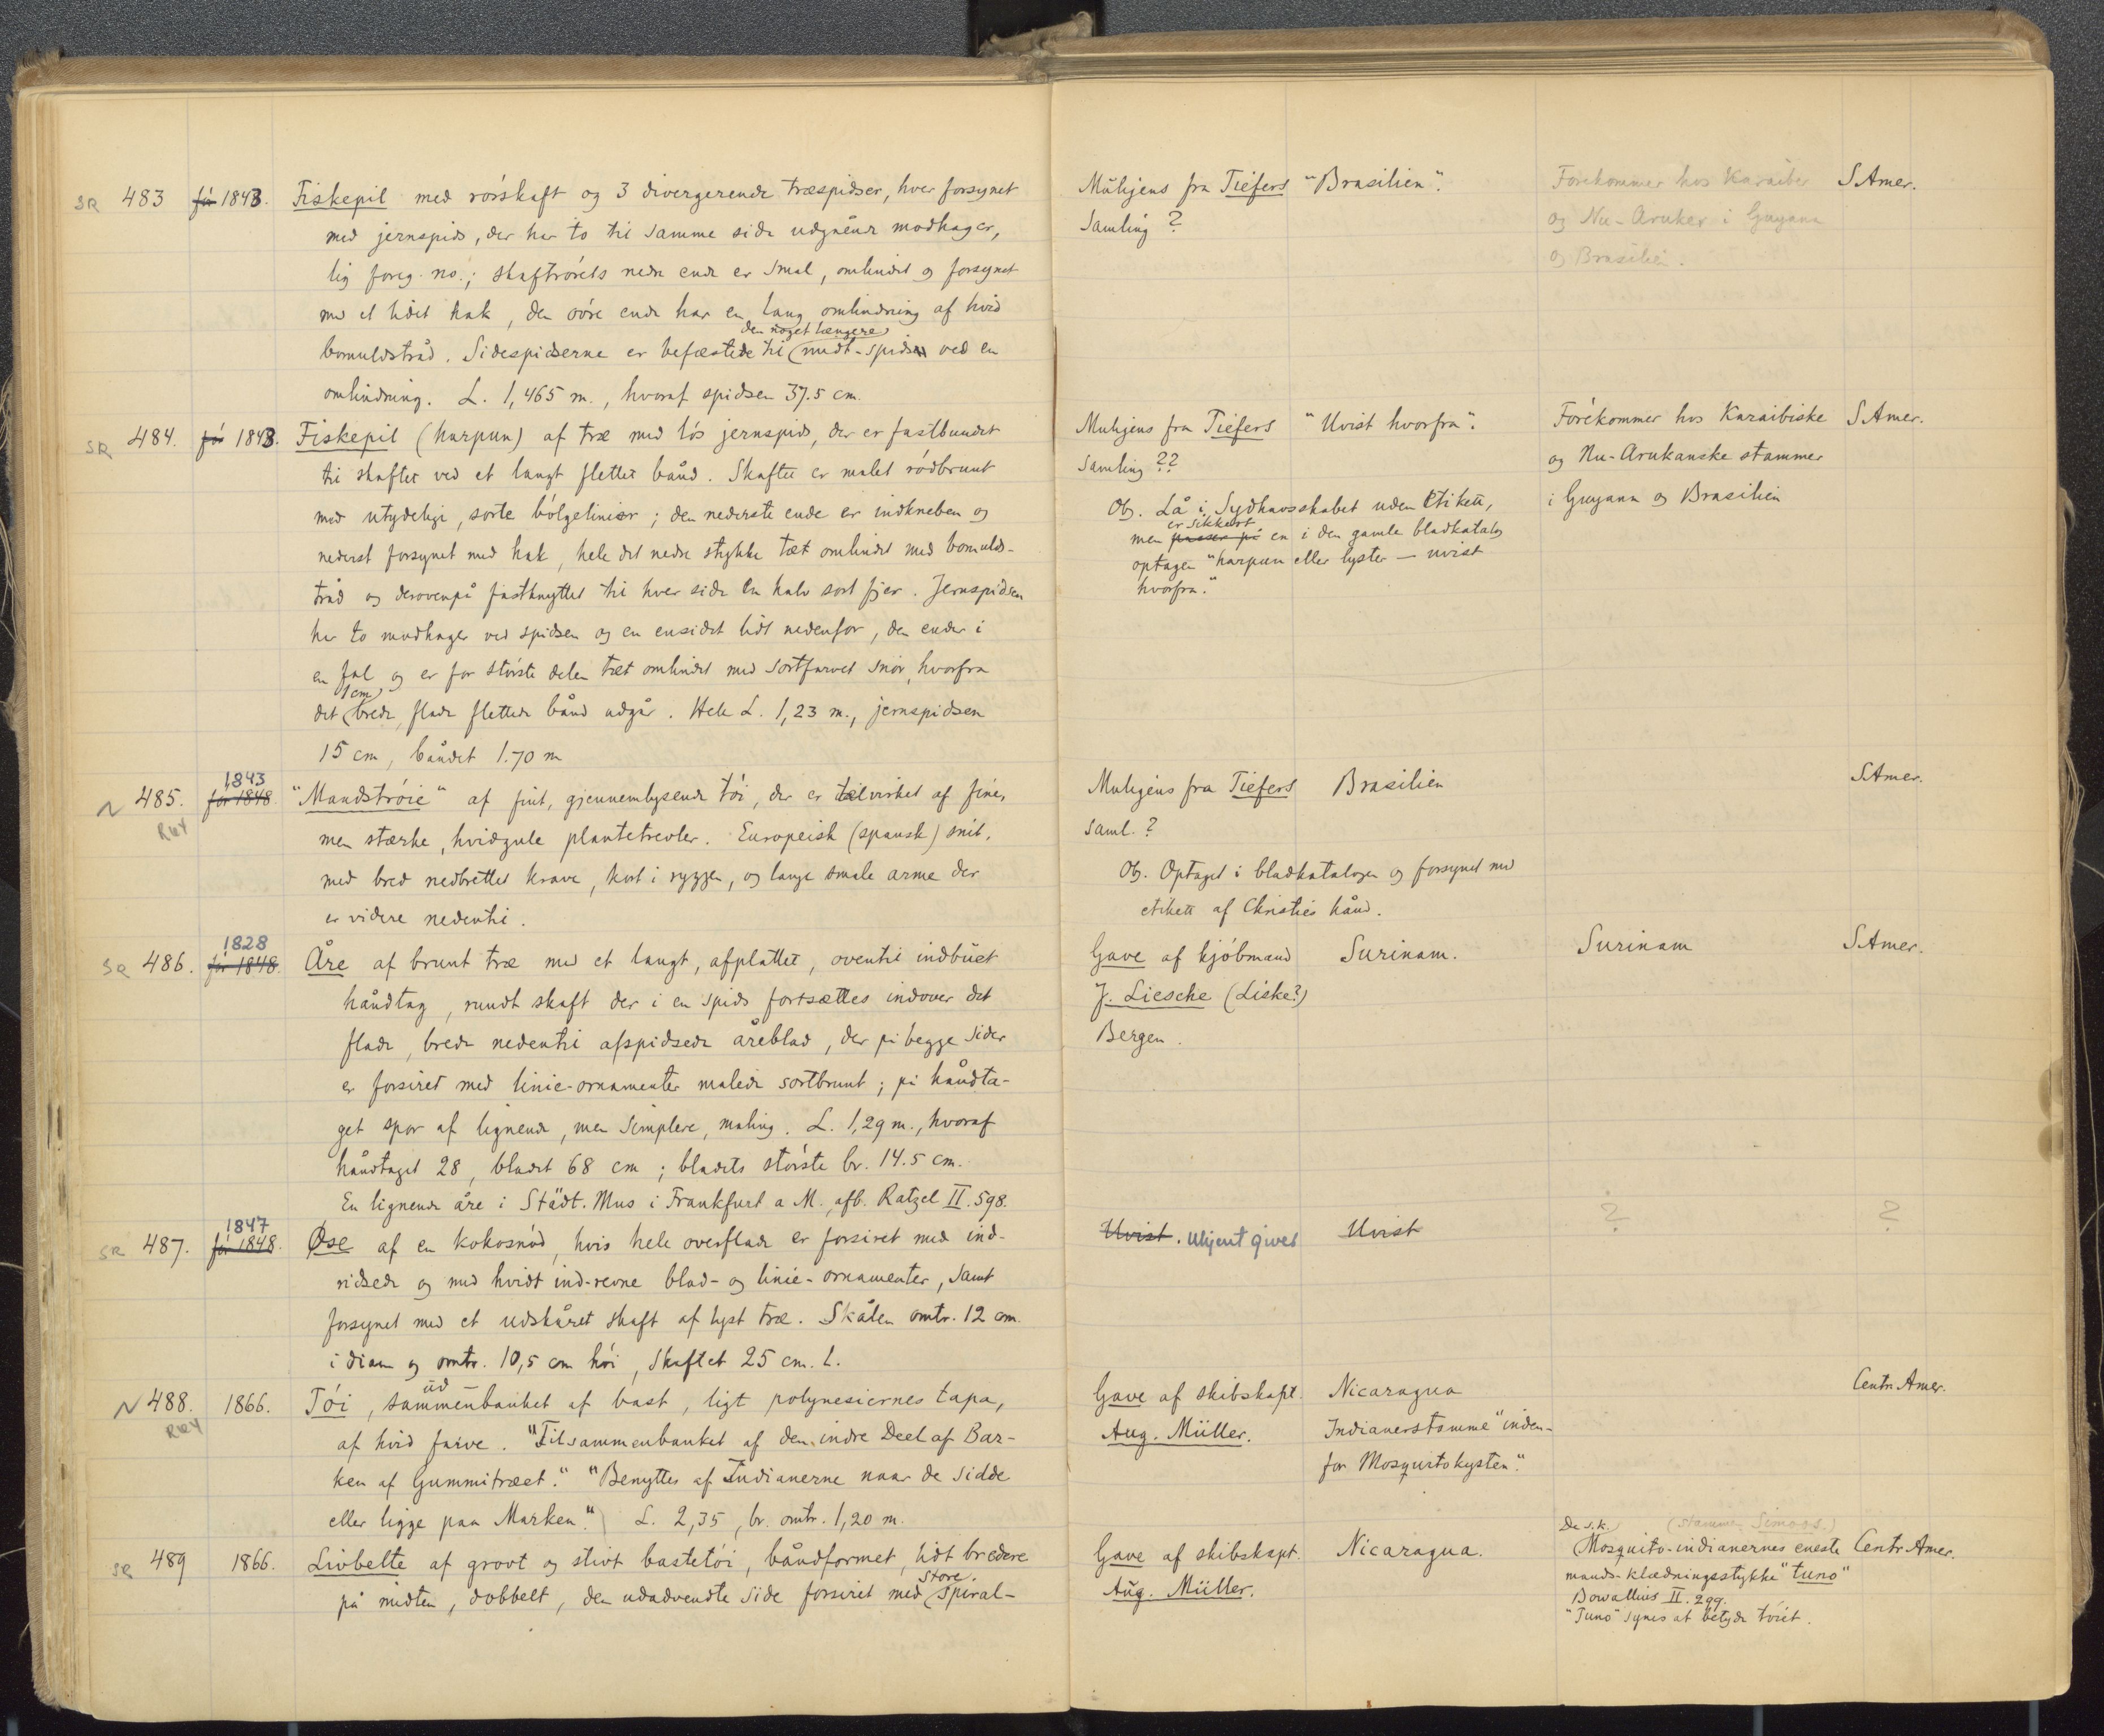 SR 483 før 1843. Fiskepil med rørskaft og 3 divergerende træspidser, hver forsynet
med jernspids, der har to til samme side udgående modhager,
lig foreg. no.; skaftrørets nedre ende er smal, omvundet og forsynet
med et lidet hak, den øvre ende har en lang omvindning af hvid
den noget længere
bomuldstråd. Sidespidserne er befæstede til midt-spidsen ved en
omvindning. L. 1,465 m., hvoraf spidsen 37.5 cm.
Muligens fra Tiefers "Brasilien".
Samling ?
Forekommer hos Karaiber
og Nu-Aruker i Guyana
og Brasilien.
S Amer.
SR 484. før 1843. Fiskepil (harpun) af træ med løs jernspids, der er fastbundet
til skaftet ved et langt flettet bånd. Skaftet er malet rødbrunt
med utydelige, sorte bølgelinier; den nederste ende er indkneben og
nederst forsynet med hak, hele det nedre stykke tæt omvundet med bomulds-
tråd og derovenpå fastknyttet til hver side en halv sort fjer. Jernspidsen
har to modhager ved spidsen og en ensidet lidt nedenfor, den ender i
en fal og er for største delen tæt omvundet med sortfarvet snor, hvorfra
1 cm
det brede, flade flettede bånd udgår. Hele L. 1,23 m., jernspidsen
15 cm, båndet 1.70 m
Muligens fra Tiefers "Uvist hvorfra".
Samling ??
Obs. Lå i Sydhavsskabet uden Etikett,
er sikkert
men passer på en i den gamle bladkatalog
optagen "harpun eller lyster — uvist
hvorfra."
Forekommer hos Karaibiske
og Nu-Arukanske stammer
i Guyana og Brasilien
S Amer.
1843
N 485. før 1848. "Mandstrøie" af fint, gjennemlysende tøi, der er tilvirket af fine,
men stærke, hvidgule plantetrevler. Europeisk (spansk) snit,
med bred nedbrettet krave, kort i ryggen, og lange smale arme der
er videre nedentil.
Muligens fra Tiefers Brasilien
Saml. ?
Obs. Optaget i bladkatalogen og forsynet med
etikett af Christies hånd.
S Amer.
1828
SR 486. før 1848. Åre af brunt træ med et langt, afplattet, oventil indbuet
håndtag, rundt skaft der i en spids fortsættes indover det
flade, brede nedentil afspidsede åreblad, der på begge sider
er forsiret med linie-ornamenter malede sortbrunt; på håndta-
get spor af lignende, men simplere, maling. L. 1,29 m., hvoraf
håndtaget 28, bladet 68 cm; bladets største br. 14.5 cm.
En lignende åre i Städt. Mus i Frankfurt a M., afb. Ratzel II. 598.
Gave af kjøbmand Surinam.
J. Liesche (Liske?)
Bergen.
Surinam
S Amer.
1847
SR 487. før 1848. Øse af en kokosnød, hvis hele overflade er forsiret med ind-
ridsede og med hvidt ind-revne blad- og linie-ornamenter, samt
forsynet med et udskåret skaft af lyst træ. Skålen omtr. 12 cm.
i diam og omtr. 10,5 cm høi, Skaftet 25 cm. l.
Uvist. Ukjent giver Uvist
? ?
N 488. 1866. Tøi, sammenbanket af bast, ligt polynesiernes tapa,
ud
af hvid farve. "Tilsammenbanket af den indre Deel af Bar-
ken af Gummitræet." "Benyttes af Indianerne naar de sidde
eller ligge paa Marken." L. 2,35, br. omtr. 1,20 m.
Gave af skibskapt. Nicaragua
Aug. Müller. Indianerstamme "inden-
for Mosquitokysten."
Centr. Amer.
SR 489 1866. Livbelte af grovt og stivt bastetøi, båndformet, lidt bredere
store
på midten, dobbelt, den udadvendte side forsiret med spiral-
Gave af skibskapt. Nicaragua.
Aug. Müller.
De s.k. (stammen Simoos.)
Mosquito-indianernes eneste Centr. Amer.
mands-klædningsstykke "tuno"
Bowallius II. 299.
"Tuno" synes at betyde tøiet.